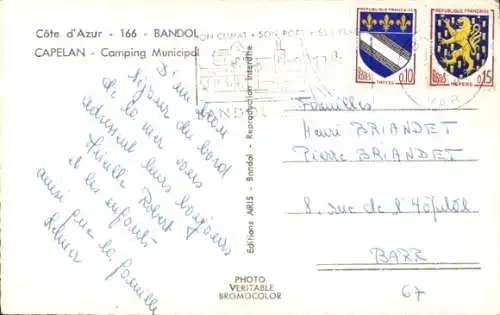 Côte d'Azur - 166 - BANDOL
CAPELAN - Camping Municipal
SON CLIMAT - SON PORT - SES
BANDOL
REPUBLIQUE FRANÇAISE
POSTES
0,10
TROYES
REPUBLIQUE FRANÇAISE
POSTES
0,15
NEVERS
VAR
D'un bon
séjour du bord
de la mer vous
adressent leurs bonjours
Famille Robert
et les enfants
ainsi que la famille
Editions ARIS - Bandol - Reproduction Interdite
Familles
Henri BRIANDET
Pierre BRIANDET
8, rue de l'Hôpital
BARR
67
PHOTO
VERITABLE
BROMOCOLOR